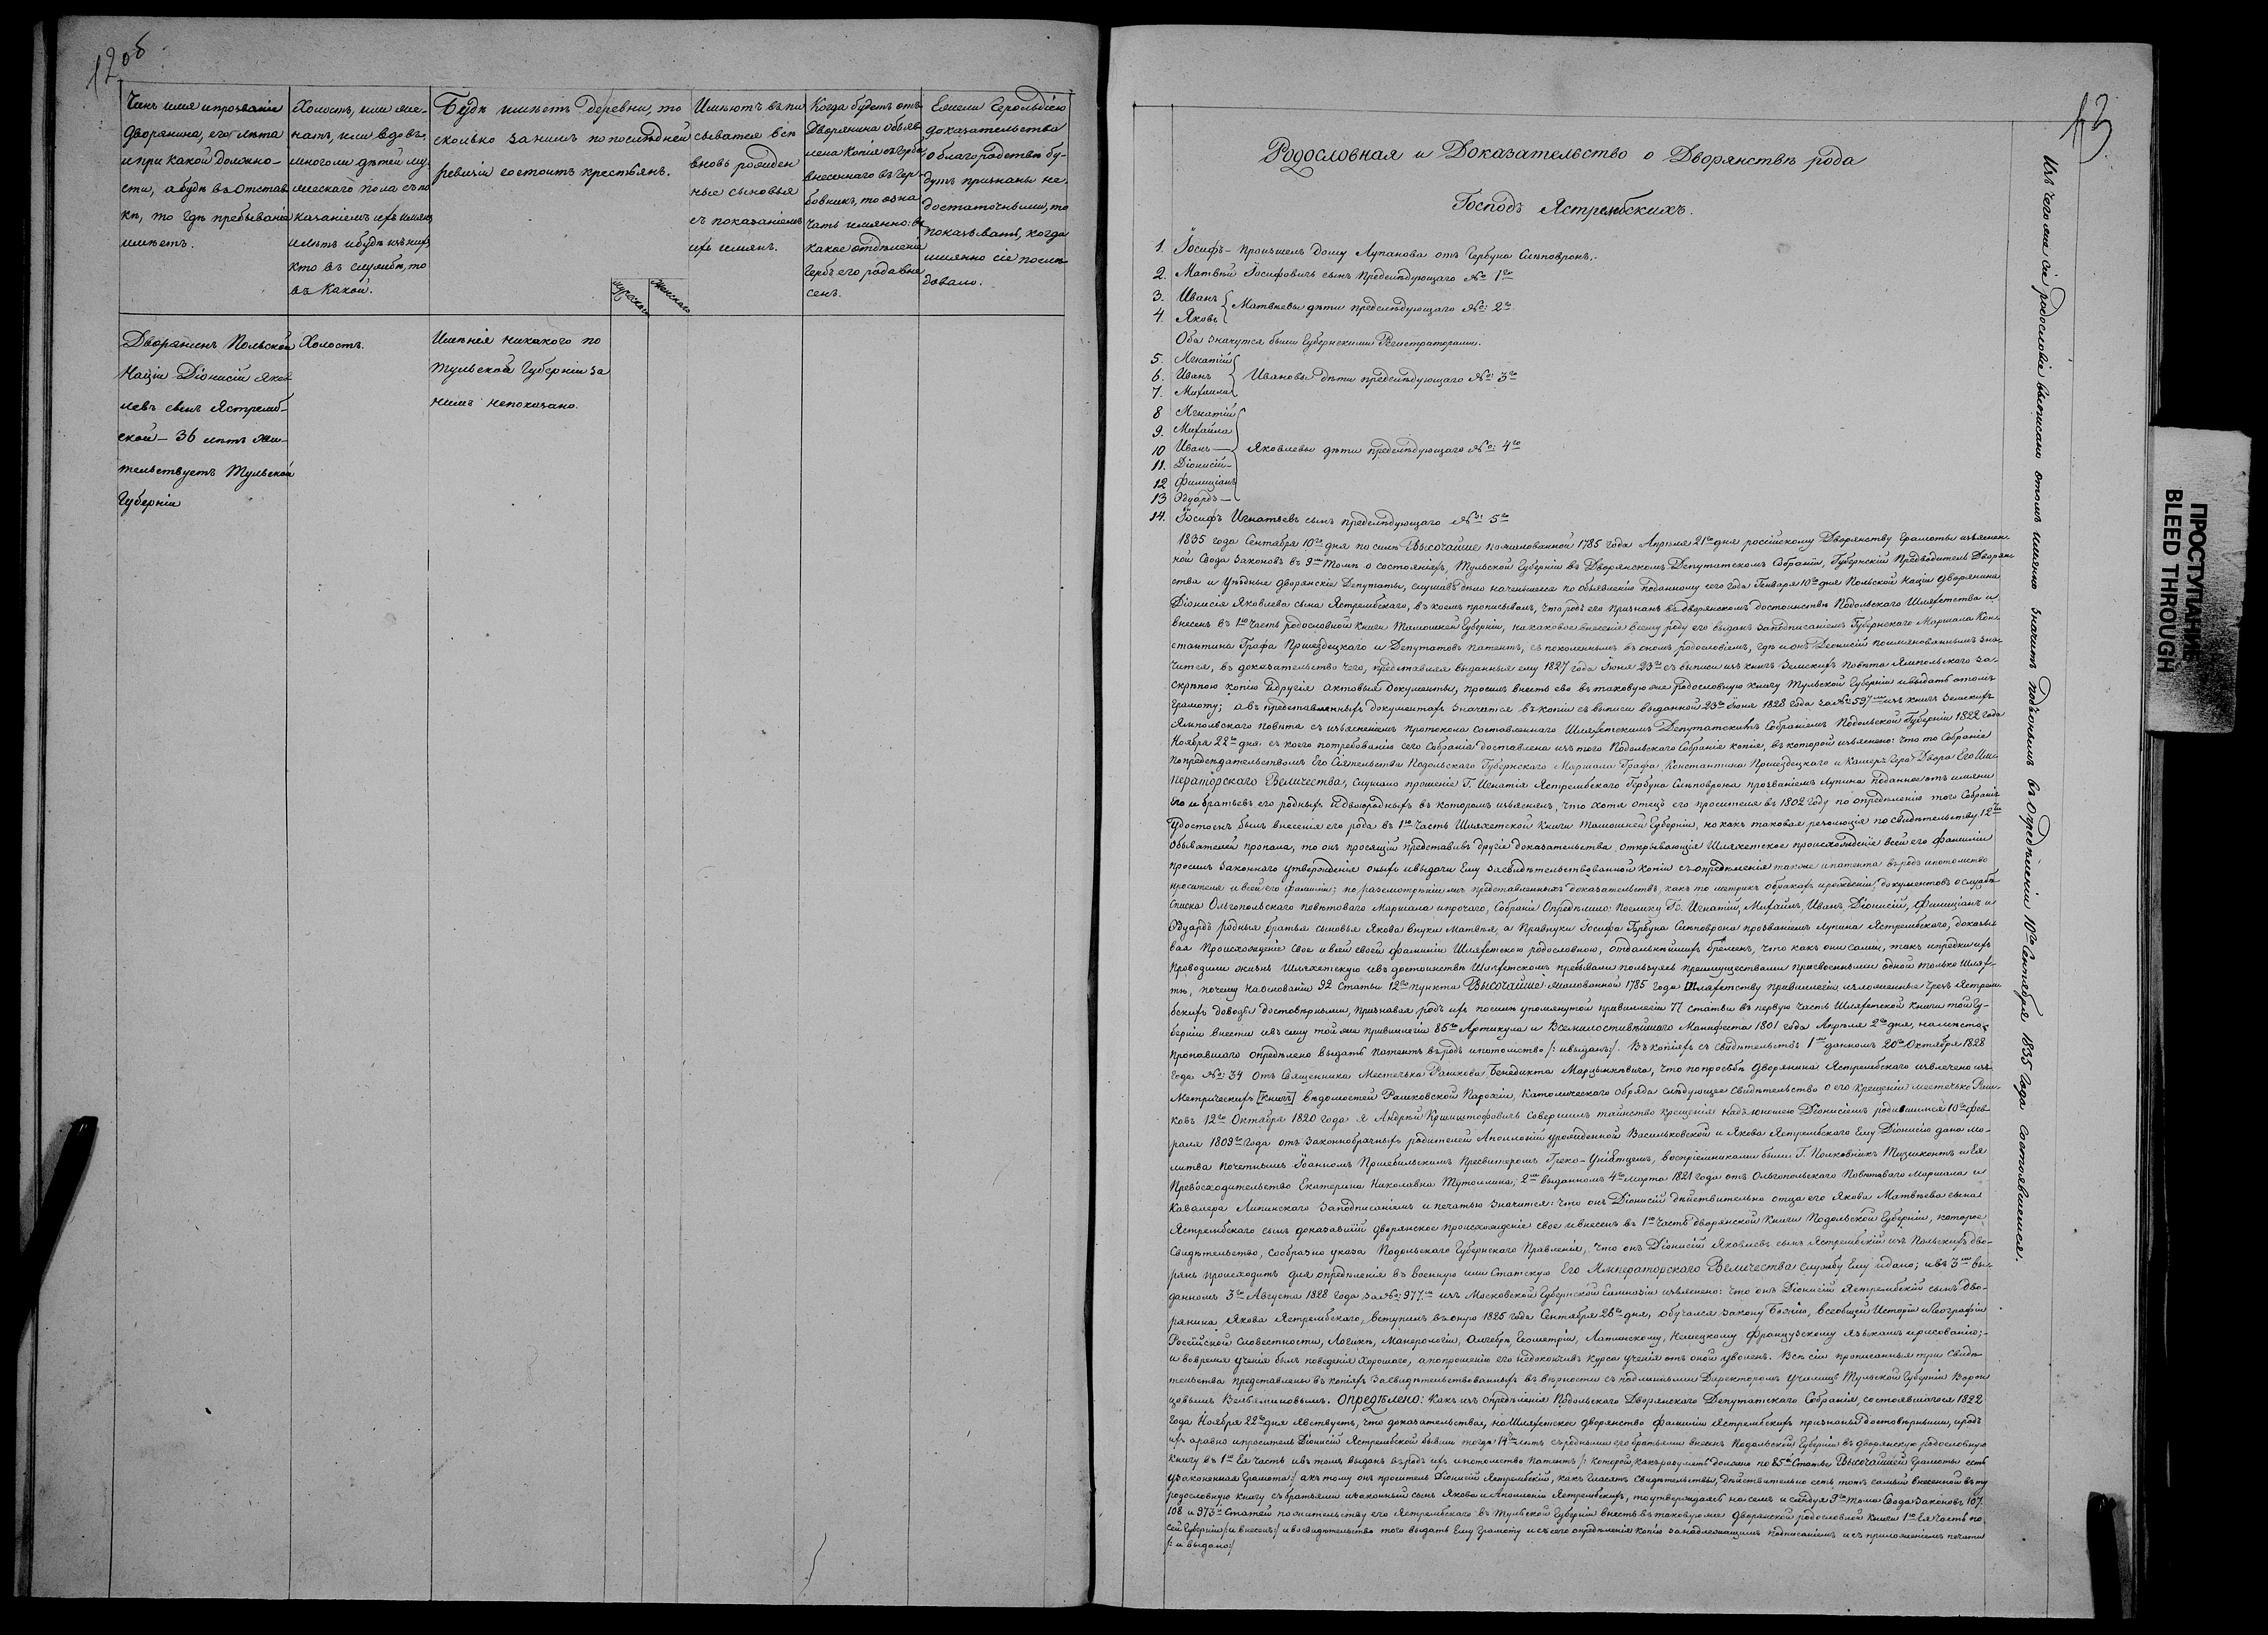 12 об
Чинъ имя и прозваніе
дворянина, его лѣта
и при какой должно-
сти, а будѣ въ отстав
кѣ, то гдѣ пребываніе
имѣетъ.
Холостъ, или же-
натъ, или вдовъ,
много ли дѣтей му
жескаго пола съ по
казаніемъ ихъ имянъ
и лѣтъ и будѣ изъ нихъ
кто въ службѣ, то
въ какой.
Будѣ имѣетъ деревни, то
сколько за нимъ по послѣдней
ревизіи состоитъ крестьянъ.
Мужеска
Женскаго
Имѣютъ въ пи
сыватся всѣ
вновь рожден
ные сыновья
съ показаніемъ
ихъ имянъ.
Когда будетъ отъ
Дворянина объяв
лена копія съ герба
внесеннаго въ Гер-
бовникъ, то озна
чать имянно: въ
какое отдѣленіе
гербъ его рода вне
сенъ.
Ежели Герольдіею
доказательства
о благородствѣ бу-
дутъ признаны не-
достаточными, то
показывать, когда
имянно сіе послѣ
довало.
Дворянинъ Польской
Націи Діонисій Яков
левъ сынъ Ястремб-
ской - 36 лѣтъ жи-
тельствуетъ Тульской
Губерніи
Холостъ.
Имѣнія никакого по
Тульской Губерніи за
нимъ непоказано.
13
Родословная и Доказательство о Дворянствѣ рода
Господъ Ястрембскихъ.
1. Іосифъ - произшелъ дому Лупанова отъ Гербуна Слѣповронъ.
2. Матвѣй Іосифовичъ сынъ предслѣдующаго № 1го
3. Иванъ
4. Яковъ
Матвѣевы дѣти предслѣдующаго №: 2го
Оба значутся были Губернскими Регистраторами.
5. Игнатій
6. Иванъ
7. Михаила
Ивановы дѣти предслѣдующаго №: 3го
8 Игнатій
9. Михайла
10 Иванъ
11. Діонисій
12 Филиціанъ
13 Эдуардъ
Яковлевы дѣти предслѣдующаго №: 4го
14. Іосифъ Игнатьевъ сынъ предслѣдующаго №: 5го
1835 года Сентября 10го дня по силѣ Высочайше пожалованной 1785 года Апреля 21го дня россійскому Дворянству грамоты изъяснен-
ной Свода Законовъ въ 9мъ Томѣ о состояніяхъ, Тульской Губерніи въ Дворянскомъ Депутатскомъ Собраніи, Губернскій Предводитель Дворян
ства и Уѣздные дворянскіе Депутаты, слушавъ дѣло начевшееся по объявленію поданному сего года Генваря 10го дня Польской Націи дворянина
Діонисія Яковлева сына Ястрембскаго, въ коемъ прописывалъ, что родъ его признанъ въ дворянскомъ достоинствѣ Подольскаго Шляхетства и
внесенъ въ 1ю часть родословной книги тамошней Губерніи, на каковое внесеніе всему роду его выданъ за подписаніемъ Губернскаго Маршала Кон-
стантина Графа Пржездецкаго и Депутатовъ патентъ, съ поколеннымъ въ ономъ родословіемъ, гдѣ и онъ Діонисій поимянованнымъ зна-
чится, въ доказательство чего, представляя выданныя ему 1827 года Іюня 23го съ выписи изъ книгъ Земскихъ Повѣта Ямпольскаго за-
скрѣпою копію и другія актовыя документы, просилъ внесть его въ таковую же родословную книгу Тульской Губерніи и выдать отомъ
грамоту; а въ представленныхъ документахъ значится въ копіи съ выписи выданной 23го Іюня 1828 года за № 597мъ изъ книгъ Земскихъ
Ямпольскаго повѣта съ изъясненіемъ протокола составленнаго Шляхетскимъ Депутатскимъ Собраніемъ Подольской Губерніи 1822 года
Ноября 22го дня съ коего потребованію сего Собранія доставлена изъ того Подольскаго Собранія копія, въ которой изъяснено: что то Собраніе
попредсѣдательствомъ Его Сіятельства Подольскаго Губернскаго Маршала Графа Константина Пржездецкаго и Камеръ-Гера Двора Его Им-
ператорскаго Величества, слушало прошеніе Г. Игнатія Ястрембскаго Гербуна Слѣповрона прозваніемъ Лупина поданное отъ имяни
Его и братьевъ его родныхъ и двоюродныхъ въ которомъ изъяснялъ, что хотя отецъ его просителя въ 1802 году по опредѣленію того Собранія
Удостоенъ былъ внесенія его рода въ 1ю часть Шляхетской Книги тамошней Губерніи, но какъ таковая резолюція по свидѣтельству 12ти
Обывателей пропала, то онъ просящій представивъ другіе доказательства открывающія Шляхетское происхожденіе всей его Фамиліи
просилъ Законнаго утвержденія оныхъ и выдачи Ему засвидѣтельствованной копіи съ опредѣленія также и патента въ родъ и потомство
просителя и всей его фамиліи; по разсмотрѣніи имъ представленныхъ доказательствъ, какъ то метрикъ о бракахъ и рожденіи, документовъ о службѣ
Списка Ольгопольскаго повѣтоваго Маршала и прочаго, Собраніе Опредѣлило: поелику Гг. Игнатій, Михаилъ, Иванъ, Діонисій, Филиціанъ и
Эдуардъ родные братья сыновья Якова внуки Матвѣя, а Правнуки Іосифа Гербуна Слѣповрона прозваніемъ Лупина Ястрембскаго, доказы-
вая Происхожденіе свое и всей своей фамиліи Шляхетскою родословною, отдальнѣйшихъ временъ, что какъ они сами, такъ и предки ихъ
проводили жизнь Шляхетскую и въ достоинствѣ Шляхетскомъ пребывали пользуясь преимуществами присвоенными одной только Шлях-
тѣ, почему на основаніи 92 Статьи 12го пункта Высочайше жалованной 1785 года Шляхетству привиллегіи изложенные чрезъ Ястрем-
бскихъ доводы достовѣрными, признавая родъ ихъ по силѣ упомянутой привиллегіи 77 статьи въ первую часть Шляхетской книги той Гу-
берніи внести и въ силу той же привиллегіи 85го Артикула и Всемилостивѣйшаго Манифеста 1801 года Апреля 2го дня, намѣсто
пропавшаго опредѣлено выдать патентъ въ родъ и потомство /: и выданъ:/. Въ копіяхъ съ свидѣтельствъ 1мъ данномъ 20го Октября 1828
года №: 34 отъ Священника Местечька Рашкова Бенедикта Марцынкевича, что по просьбѣ дворянина Ястрембскаго извлечено изъ
Метрическихъ [книгъ] вѣдомостей Рашковской Парохіи, Католическаго обряда слѣдующее Свидѣтельство о его крещеніи местечько Раш-
ковъ 12го Октября 1820 года я Андрей Кршиштофовичъ Совершилъ таинство крещенія надъ юношею Діонисіемъ родившимся 10го фев-
раля 1809го года отъ законнобрачныхъ родителей Аполлоніи урожденной Васильковской и Якова Ястрембскаго Ему Діонисію дана мо-
литва почетнымъ Іоанномъ Пржебильскимъ Пресвитеромъ Греко-Уніятцемъ, воспріемниками были Г. Полковникъ и Ея
Превосходительство Екатерина Николавна Тутолмина; 2мъ выданномъ 4го Марта 1821 года отъ Ольгопольскаго Повѣтоваго Маршала и
Кавалера Липинскаго за подписаніемъ и печатью значится: что онъ Діонисій дѣйствительно отца его Якова Матвѣева сына
Ястрембскаго сынъ доказавшій дворянское происхожденіе свое и внесенъ въ 1ю часть дворянской Книги Подольской Губерніи, которое
Свидѣтельство, сообразно указа Подольскаго Губернскаго Правленія, что онъ Діонисій Яковлевъ сынъ Ястрембскій изъ Польскихъ дво-
рянъ происходитъ для опредѣленія въ военную или Статскую Его Императорскаго Величества службу Ему и дано; и въ 3мъ вы-
данномъ 3го Августа 1828 года за №: 977мъ изъ Московской Губернской Гимназіи изъяснено: что онъ Діонисій Ястрембскій сынъ дво-
рянина Якова Ястрембскаго, вступилъ въ оную 1825 года Сентября 26го дня, обучался закону Божію, всеобщей Исторіи и Географіи
Россійской словестности, Логикѣ, Минерологіи, Алгебрѣ, Геометріи, Латинскому, Немецкому Французскому языкамъ и рисованію;-
и вовремя ученія былъ поведенія хорошаго, а попрошенію его недокончивъ курса ученія отъ оной уволенъ. Всѣ сіи прописанныя три свидѣ
тельства представлены въ копіяхъ засвидѣтельствованныхъ въ вѣрности съ подлинными Директоромъ училищъ Тульской Губерніи Ворон
цовымъ Вельяминовымъ. Опредѣлено: какъ изъ опредѣленія Подольскаго Дворянскаго Депутатскаго Собранія, состоявшагося 1822
года Ноября 22го дня явствуетъ, что доказательства, на Шляхетское дворянство фамиліи Ястрембскихъ признаны достовѣрными, и родъ
ихъ а равно и проситель Діонисій Ястрембской бывши тогда 14ти лѣтъ съ родными его братьями внесенъ Подольской Губерніи въ дворянскую родословную
Книгу въ 1ю Ея часть и въ томъ выданъ въ родъ ихъ и потомство патентъ /: которой, какъ разумѣть должно по 85й Статьи Высочайшей грамоты есть
узаконенная грамота:/ а къ тому онъ проситель Діонисій Ястрембскій, какъ гласятъ свидѣтельства, дѣйствительно есть тотъ самый внесенной въ ту
родословную книгу съ братьями и законный сынъ Якова и Аполлоніи Ястрембскихъ, то утверждаясь на семъ и слѣдуя 9го тома Свода Законовъ 107.
108 и 973й Статей по жительству его Ястрембскаго въ Тульской Губерніи внесть въ таковую же дворянской родословной книги 1ю Ея часть по
сей Губерніи /: и внесенъ:/ и во свидѣтельство того выдать Ему Грамоту и съ сего опредѣленія копію за надлежащимъ подписаніемъ и съ приложеніемъ печати
/: и выдано:/
Изъ чего же сіе родословіе выписано о томъ имянно значитъ подъ онымъ въ Опредѣленіи 10го Сентября 1835 года состоявшемся.
ПРОСТУПАНИЕ
BLEED THROUGH